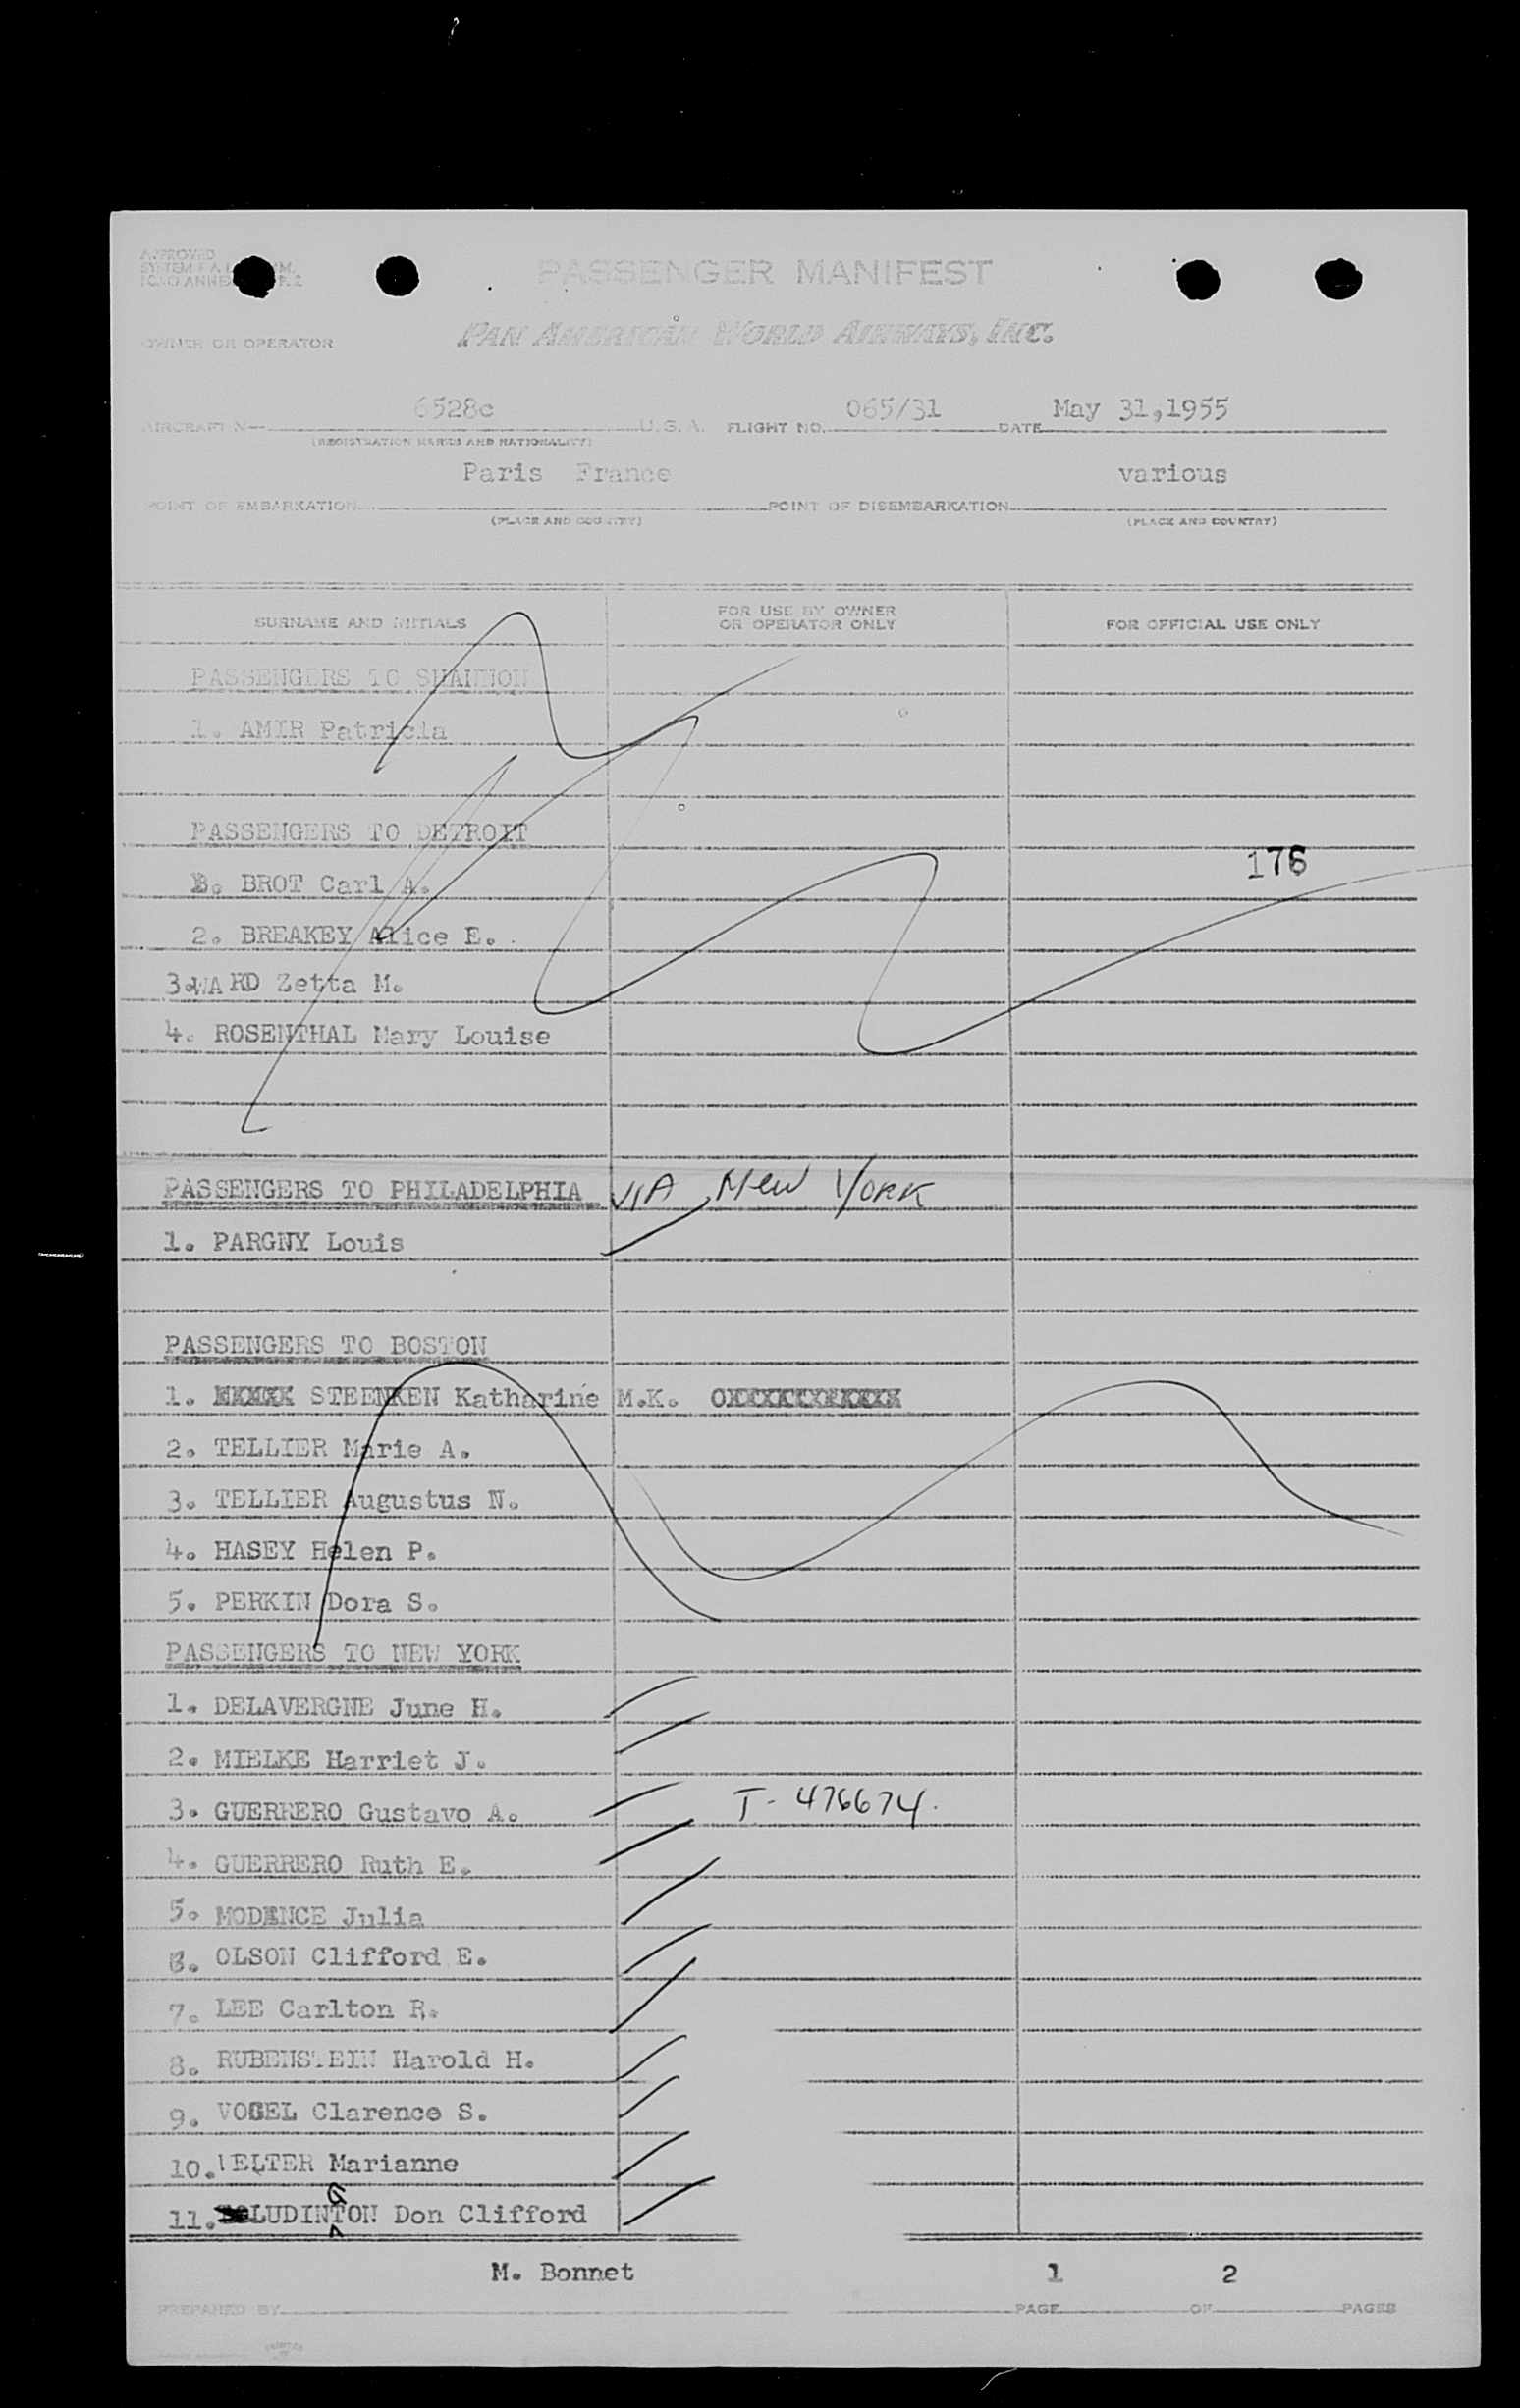 APPROVED
PASSENGER MANIFEST
OWNER OR OPERATOR PAN AMERICAN WORLD AIRWAYS, INC.
6528c 065/31 May 31,1955
AIRCRAFT N— U.S.A. FLIGHT NO. DATE
(REGISTRATION MARKS AND NATIONALITY)
Paris France various
POINT OF EMBARKATION POINT OF DISEMBARKATION
(PLACE AND COUNTRY) (PLACE AND COUNTRY)
SURNAME AND INITIALS FOR USE BY OWNER OR OPERATOR ONLY FOR OFFICIAL USE ONLY
PASSENGERS TO SHANNON
1. AMIR Patricia
PASSENGERS TO DETROIT
176
BROT Carl A.
2. BREAKEY Alice E.
3.WARD Zetta M.
4. ROSENTHAL Mary Louise
PASSENGERS TO PHILADELPHIA VIA New York
1. PARGNY Louis
PASSENGERS TO BOSTON
1. STEENKEN Katharine M.K.
2. TELLIER Marie A.
3. TELLIER Augustus N.
4. HASEY Helen P.
5. PERKIN Dora S.
PASSENGERS TO NEW YORK
1. DELAVERGNE June H.
2. MIELKE Harriet J.
3. GUERRERO Gustavo A. T- 476674.
4. GUERRERO Ruth E.
5. Julia
6. OLSON Clifford E.
7. LEE Carlton R.
8. RUBENSTEIN Harold H.
9. VOGEL Clarence S.
10. Marianne
11. LUDINGTON Don Clifford
M. Bonnet 1 2
PREPARED BY PAGE OF PAGES